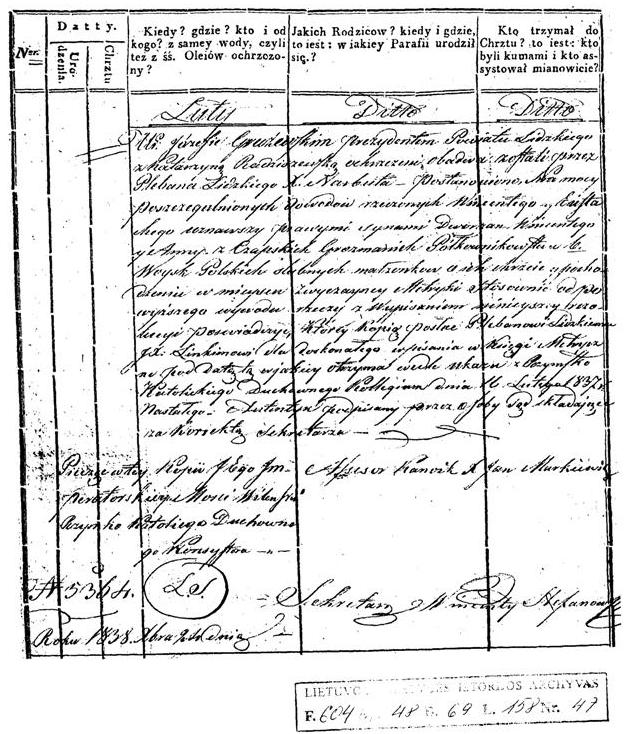 Nrr.
Datty.
Urodzenia.
Chrztu
Kiedy? gdzie? kto i od
kogo? z samey wody, czyli
też z śś. Olejów ochrzczo-
ny?
Jakich Rodziców? kiedy i gdzie,
to iest: w iakiey Parafii urodził
się?
Kto trzymał do
Chrztu? to iest: kto
byli kumami i kto as-
systował mianowicie?
Luty Ditto Ditto
Józefie Gruzewskim Prezydentem Powiatu Lidzkiego
z Katarzyną Radziszewską ochrzczeni obadwa zostali przez
Plebana Lidzkiego X. Narbuta - Postanowiono, Na mocy
poszczegulnionych dowodow rzeczonych Wincentego y Eusta-
chego uznawszy prawymi synami Dworzan Wincentego
y Anny z Czapskich Półkownikow b.
Woysk Polskich slubnych małżonkow o ich chrzcie y pocho-
dzeniu w miejscu zwyczayney Metryki stosownie od po-
wyższego wywodu rzeczy z Wypisaniem ninieyszey rezo-
lucyi poswiadczyć, Którey kopią posłać Plebanowi Lidzkiemu
JX. Linkinowi dla doskonałego wpisania w Księgi Metrycz-
ne pod datą w jakiey otrzyma wedle ukazu z Rzymsko
Katolickiego Duchownego Kollegium dnia 16 Lutego 1837 r.
Nastałego - Autentyk podpisany przez osoby Sąd składające
za Korrektą Sekretarza
Pieczęć w tey Kopii Jego Im-
peratorskiey Mosci Wilenski
Rzymsko Katolickiego Duchowne-
go Konsystorza
Assesor Kanonik X Jan Markiewicz
N 5364. L.S.
Sekretarz Wincenty
Roku 1838. Xbra dnia
LIETUVOS ISTORIJOS ARCHYVAS
F. 604 48 B. 69 L. 158 Nr. 47